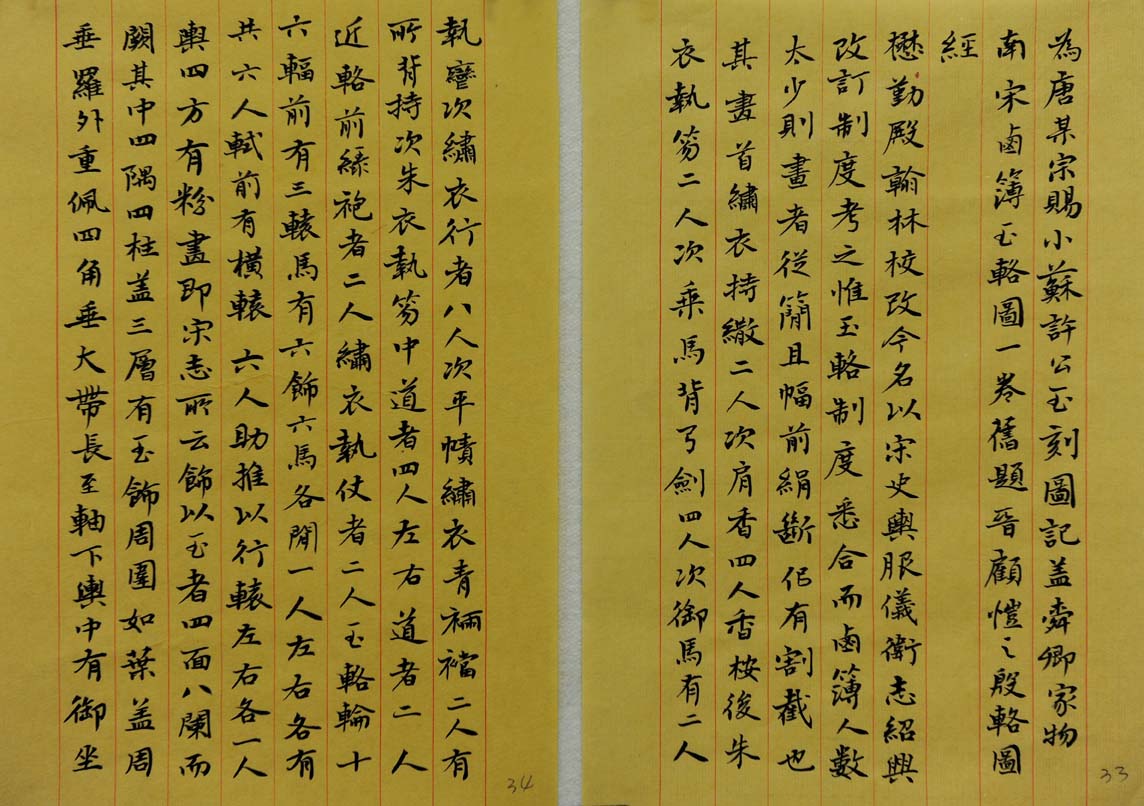 為唐某宗賜小蘇許公玉刻圖記蓋舜卿家物
南宋鹵簿玉輅圖一卷舊題晉顧愷之殷輅圖
經
懋勤殿翰林校改今名以宋史輿服儀衛志紹興
改訂制度考之惟玉輅制度悉合而鹵簿人數
太少則畫者從簡且幅前絹斷佀有割截也
其畫首繡衣持繖二人次肩香四人香桉後朱
衣執笏二人次乘馬背弓劍四人次御馬有二人
33
執鑾次繡衣行者八人次平幘繡衣青裲襠二人有
所背持次朱衣執笏中道者四人左右道者二人
近輅前綠袍者二人繡衣執仗者二人玉輅輪十
六輻前有三轅馬有六飾六馬各閒一人左右各有
共六人軾前有橫轅六人助推以行轅左右各一人
輿四方有粉畫即宋志所云飾以玉者四面八闌而
闕其中四隅四柱盖三層有玉飾周圍如葉盖周
垂羅外重佩四角垂大帶長至軸下輿中有御坐
34